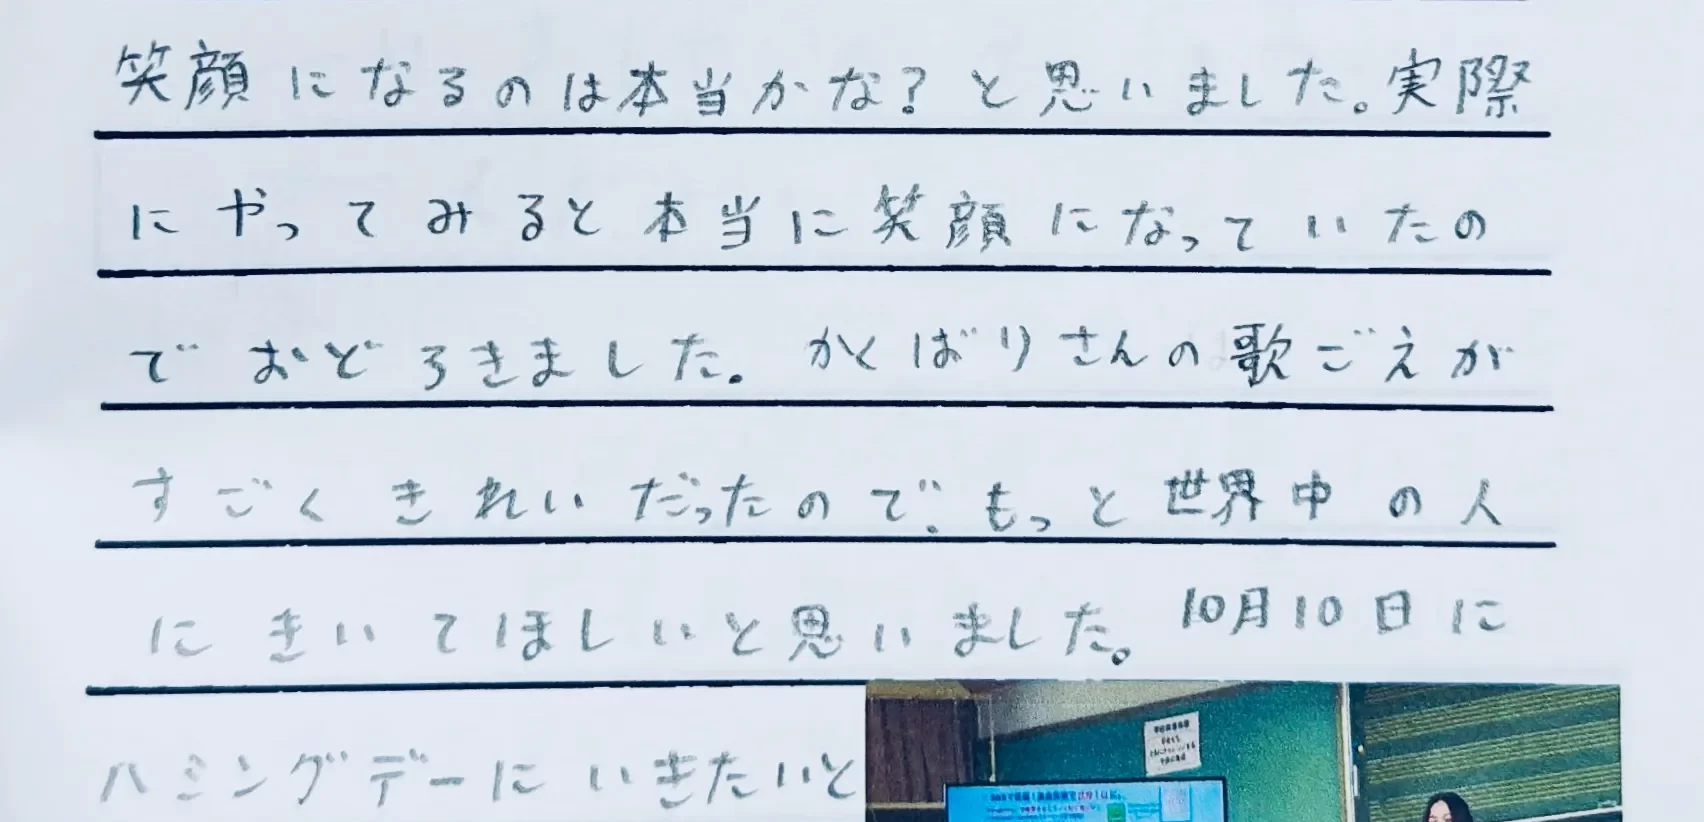 笑顔になるのは本当かな?と思いました。実際
にやってみると本当に笑顔になっていたの
でおどろきました。かくばりさんの歌ごえが
すごくきれいだったので、もっと世界中の人
にきいてほしいと思いました。10月10日に
ハミングデーにいきたいと